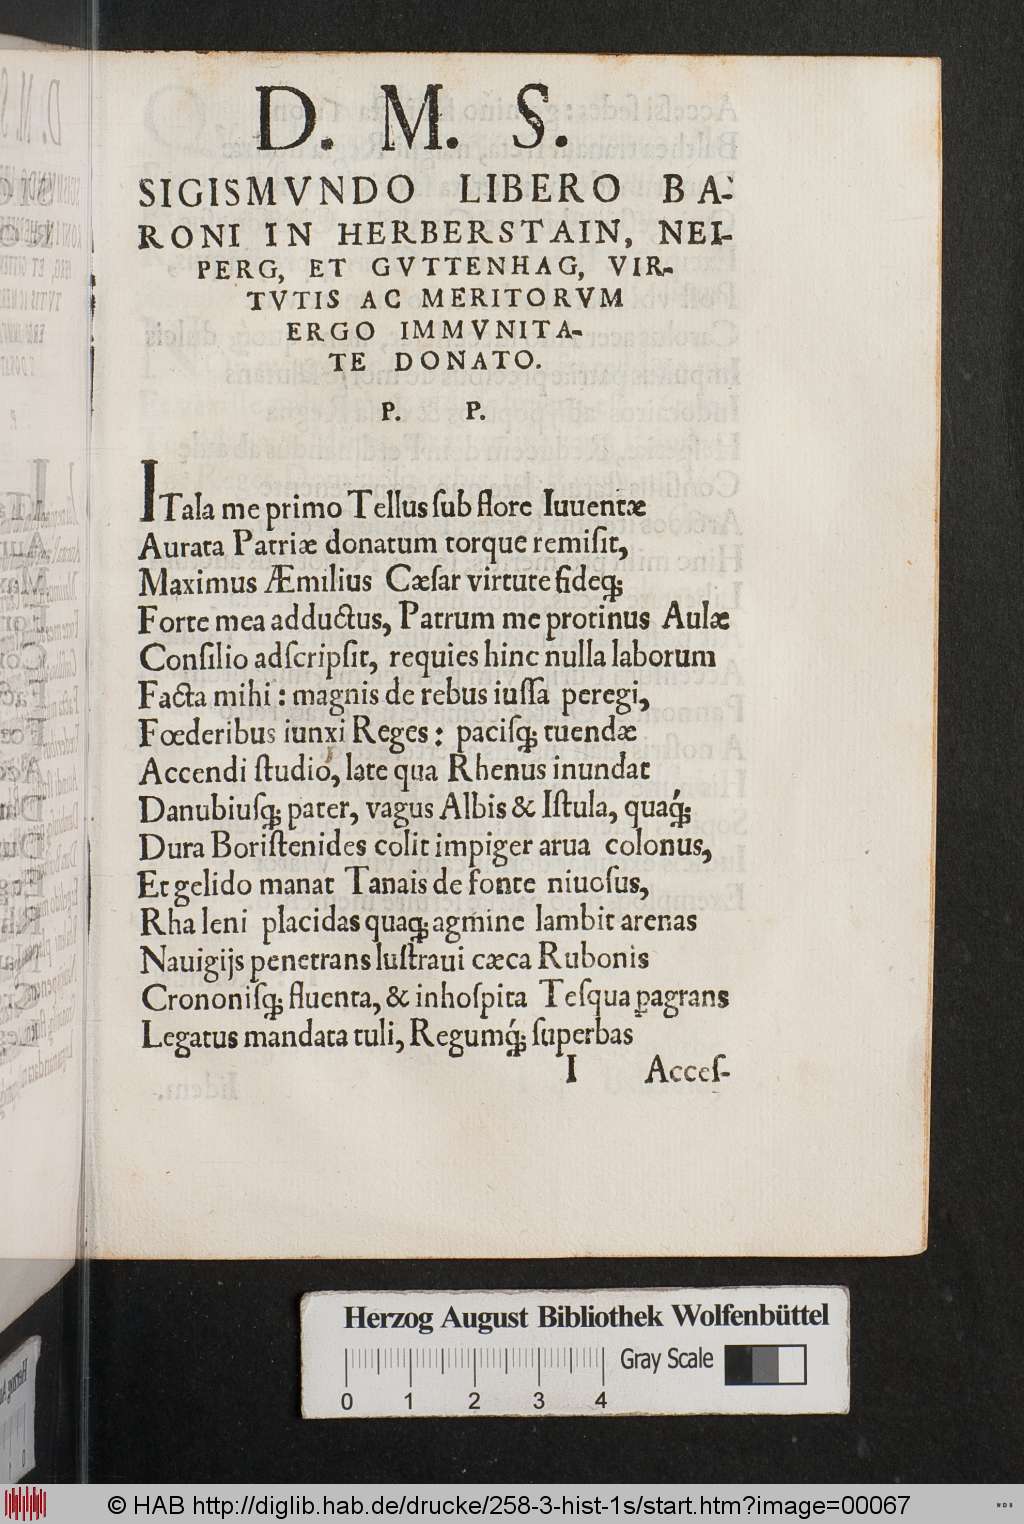 D. M. S.
SIGISMVNDO LIBERO BA-
RONI IN HERBERSTAIN, NEI-
PERG, ET GVTTENHAG, VIR-
TVTIS AC MERITORVM
ERGO IMMVNITA-
TE DONATO.
P. P.
ITala me primo Tellus ſub flore Iuuentæ
Aurata Patriæ donatum torque remiſit,
Maximus Æmilius Cæſar virtute fideq;
Forte mea adductus, Patrum me protinus Aulæ
Conſilio adſcripſit, requies hinc nulla laborum
Facta mihi: magnis de rebus iuſſa peregi,
Fœderibus iunxi Reges: paciſq; tuendæ
Accendi ſtudio, late qua Rhenus inundat
Danubiuſq; pater, vagus Albis & Iſtula, quaq́;
Dura Boriſtenides colit impiger arua colonus,
Et gelido manat Tanais de fonte niuoſus,
Rha leni placidas quaq; agmine lambit arenas
Nauigijs penetrans luſtraui cæca Rubonis
Crononiſq; fluenta, & inhoſpita Teſqua ꝑagrans
Legatus mandata tuli, Regumq́; ſuperbas
I Acceſ-
Herzog August Bibliothek Wolfenbüttel
Gray Scale
0 1 2 3 4
© HAB http://diglib.hab.de/drucke/258-3-hist-1s/start.htm?image=00067